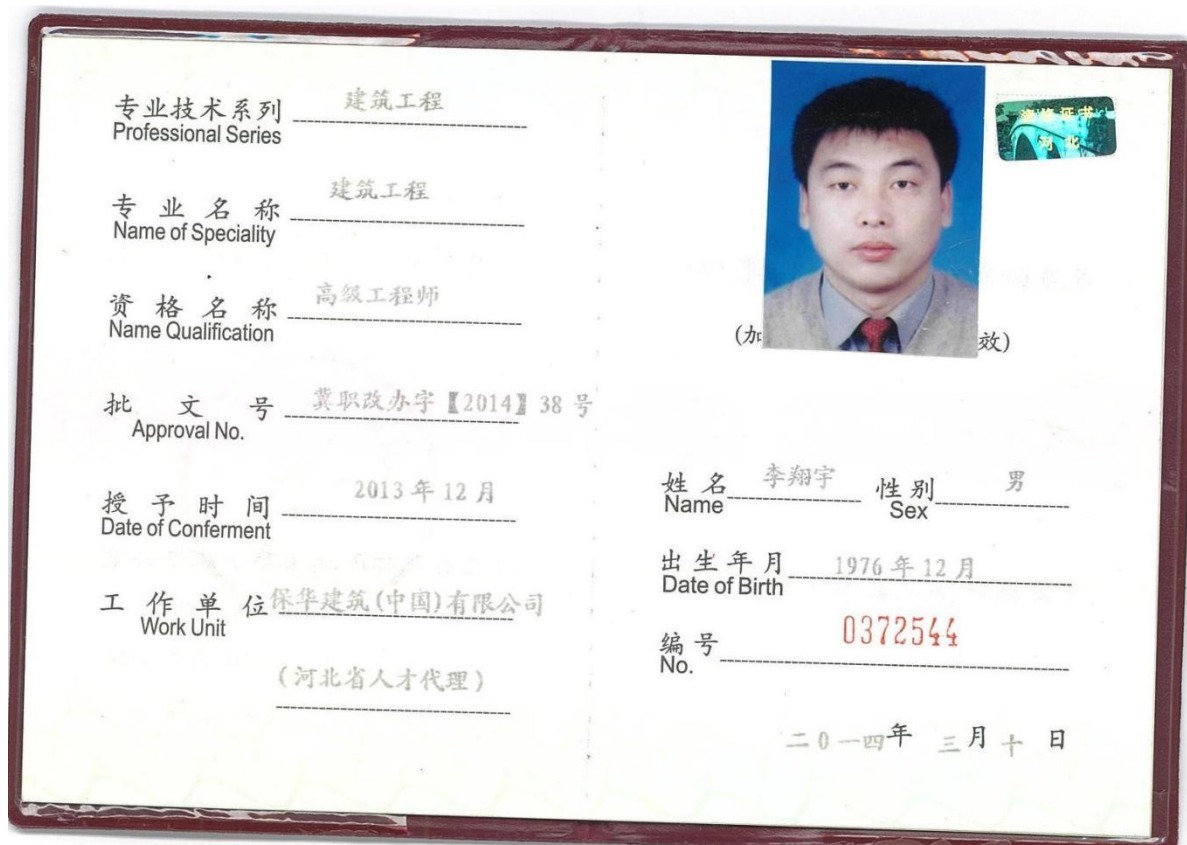 专业技术系列 建筑工程
Professional Series
专业名称 建筑工程
Name of Speciality
资格名称 高级工程师
Name Qualification
批文号 冀职改办字【2014】38号
Approval No.
授予时间 2013年12月
Date of Conferment
工作单位 保华建筑(中国)有限公司
Work Unit
(河北省人才代理)
资格证书
河北
(加
效)
姓名 李翔宇 性别 男
Name Sex
出生年月 1976年12月
Date of Birth
编号 0372544
No.
二0一四年 三月十日